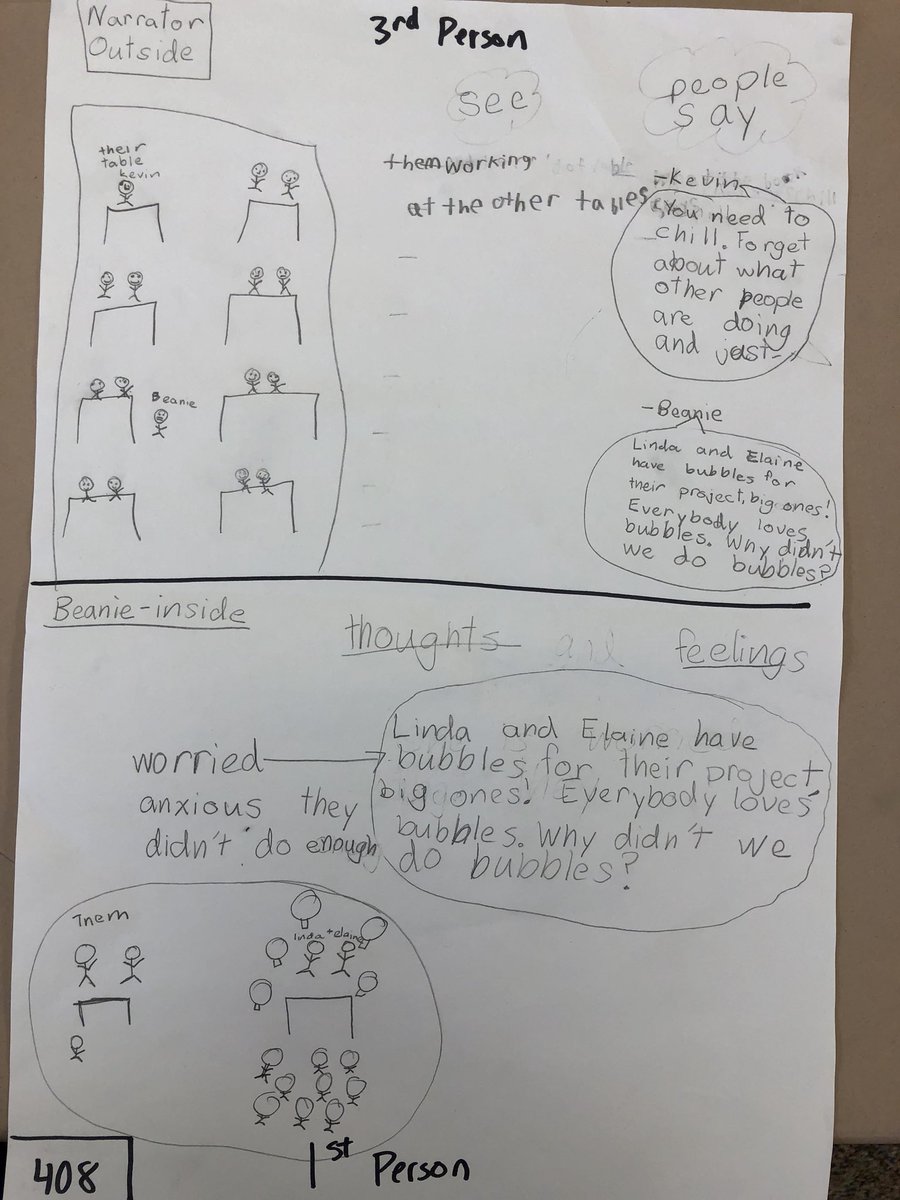 Narrator
Outside
3rd Person
see
people
say
their
table
kevin
them working
at the other tables
Beanie
-Kevin
You need to
chill. Forget
about what
other people
are doing
and just-
-Beanie
Linda and Elaine
have bubbles for
their project, big ones!
Everybody loves
bubbles. Why didn't
we do bubbles?
Beanie-inside
thoughts and feelings
worried
anxious they
didn't do enough
Linda and Elaine have
bubbles for their project
big ones! Everybody loves
bubbles. Why didn't we
do bubbles?
Them
linda + elaine
1st Person
408